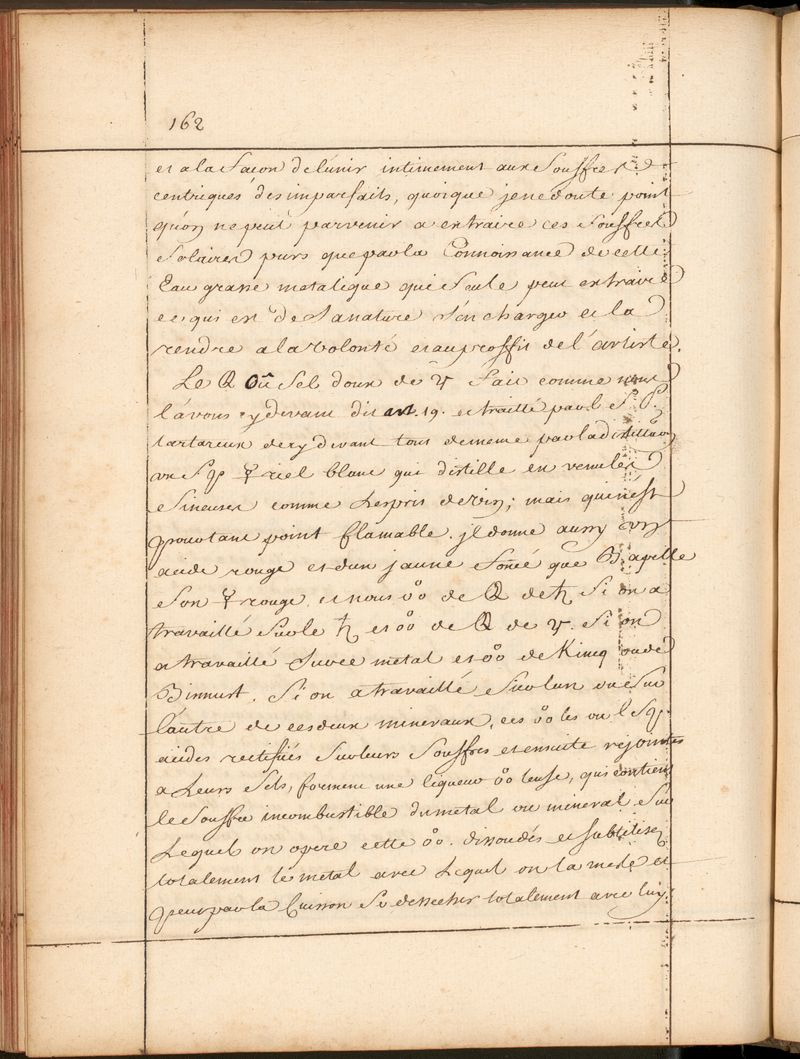 162
et a la facon de lunir intimement aux Souffres
centriques des imparfaits, quoique je ne doute point
quon ne peut parvenir a extraire ces Souffres
Solaires purs que par la Connoissance de cette
Eau grasse metalique qui Seule peut extraire
et qui est de Sa nature Sen charger et la
rendre a la volonté et au proffit de l'artiste.
Le Q Oû Sel doux de ♃ fait comme nous
lávons cy devant dit art. 19. et traitté par l
tartareux de cy devant tout de meme par la distillaôn
un ☿riel blanc qui distille en venules
Sineuses comme Lesprit de vin; mais qui nést
pourtant point flamable. jl donne aussy un
acide rouge et dun jaune foncé que B apelle
Son ☿ rouge, et nous oo° de Q de ♄ Si on a
travaillé Sur le ♄ et oo° de Q de ♃. Si on
a travaillé Sur ce metal et oo° de Kincq ou de
Bismust. Si on a travaillé Sur lun ou Sur
láutre de ces deux mineraux, ces oo° les ou l
acides rectifiés Sur leurs Souffres et ensuite rejointes
a Leurs Sels, forment une liqueur oo° leuse, qui contient
le Souffre incombustible du metal ou mineral Sur
Lequel on opere cette oo°. dissoudés et Subtilisez
totalement le metal avec Lequel on la mesle et
peut par la Cuisson Se dessecher totalement avec luy.